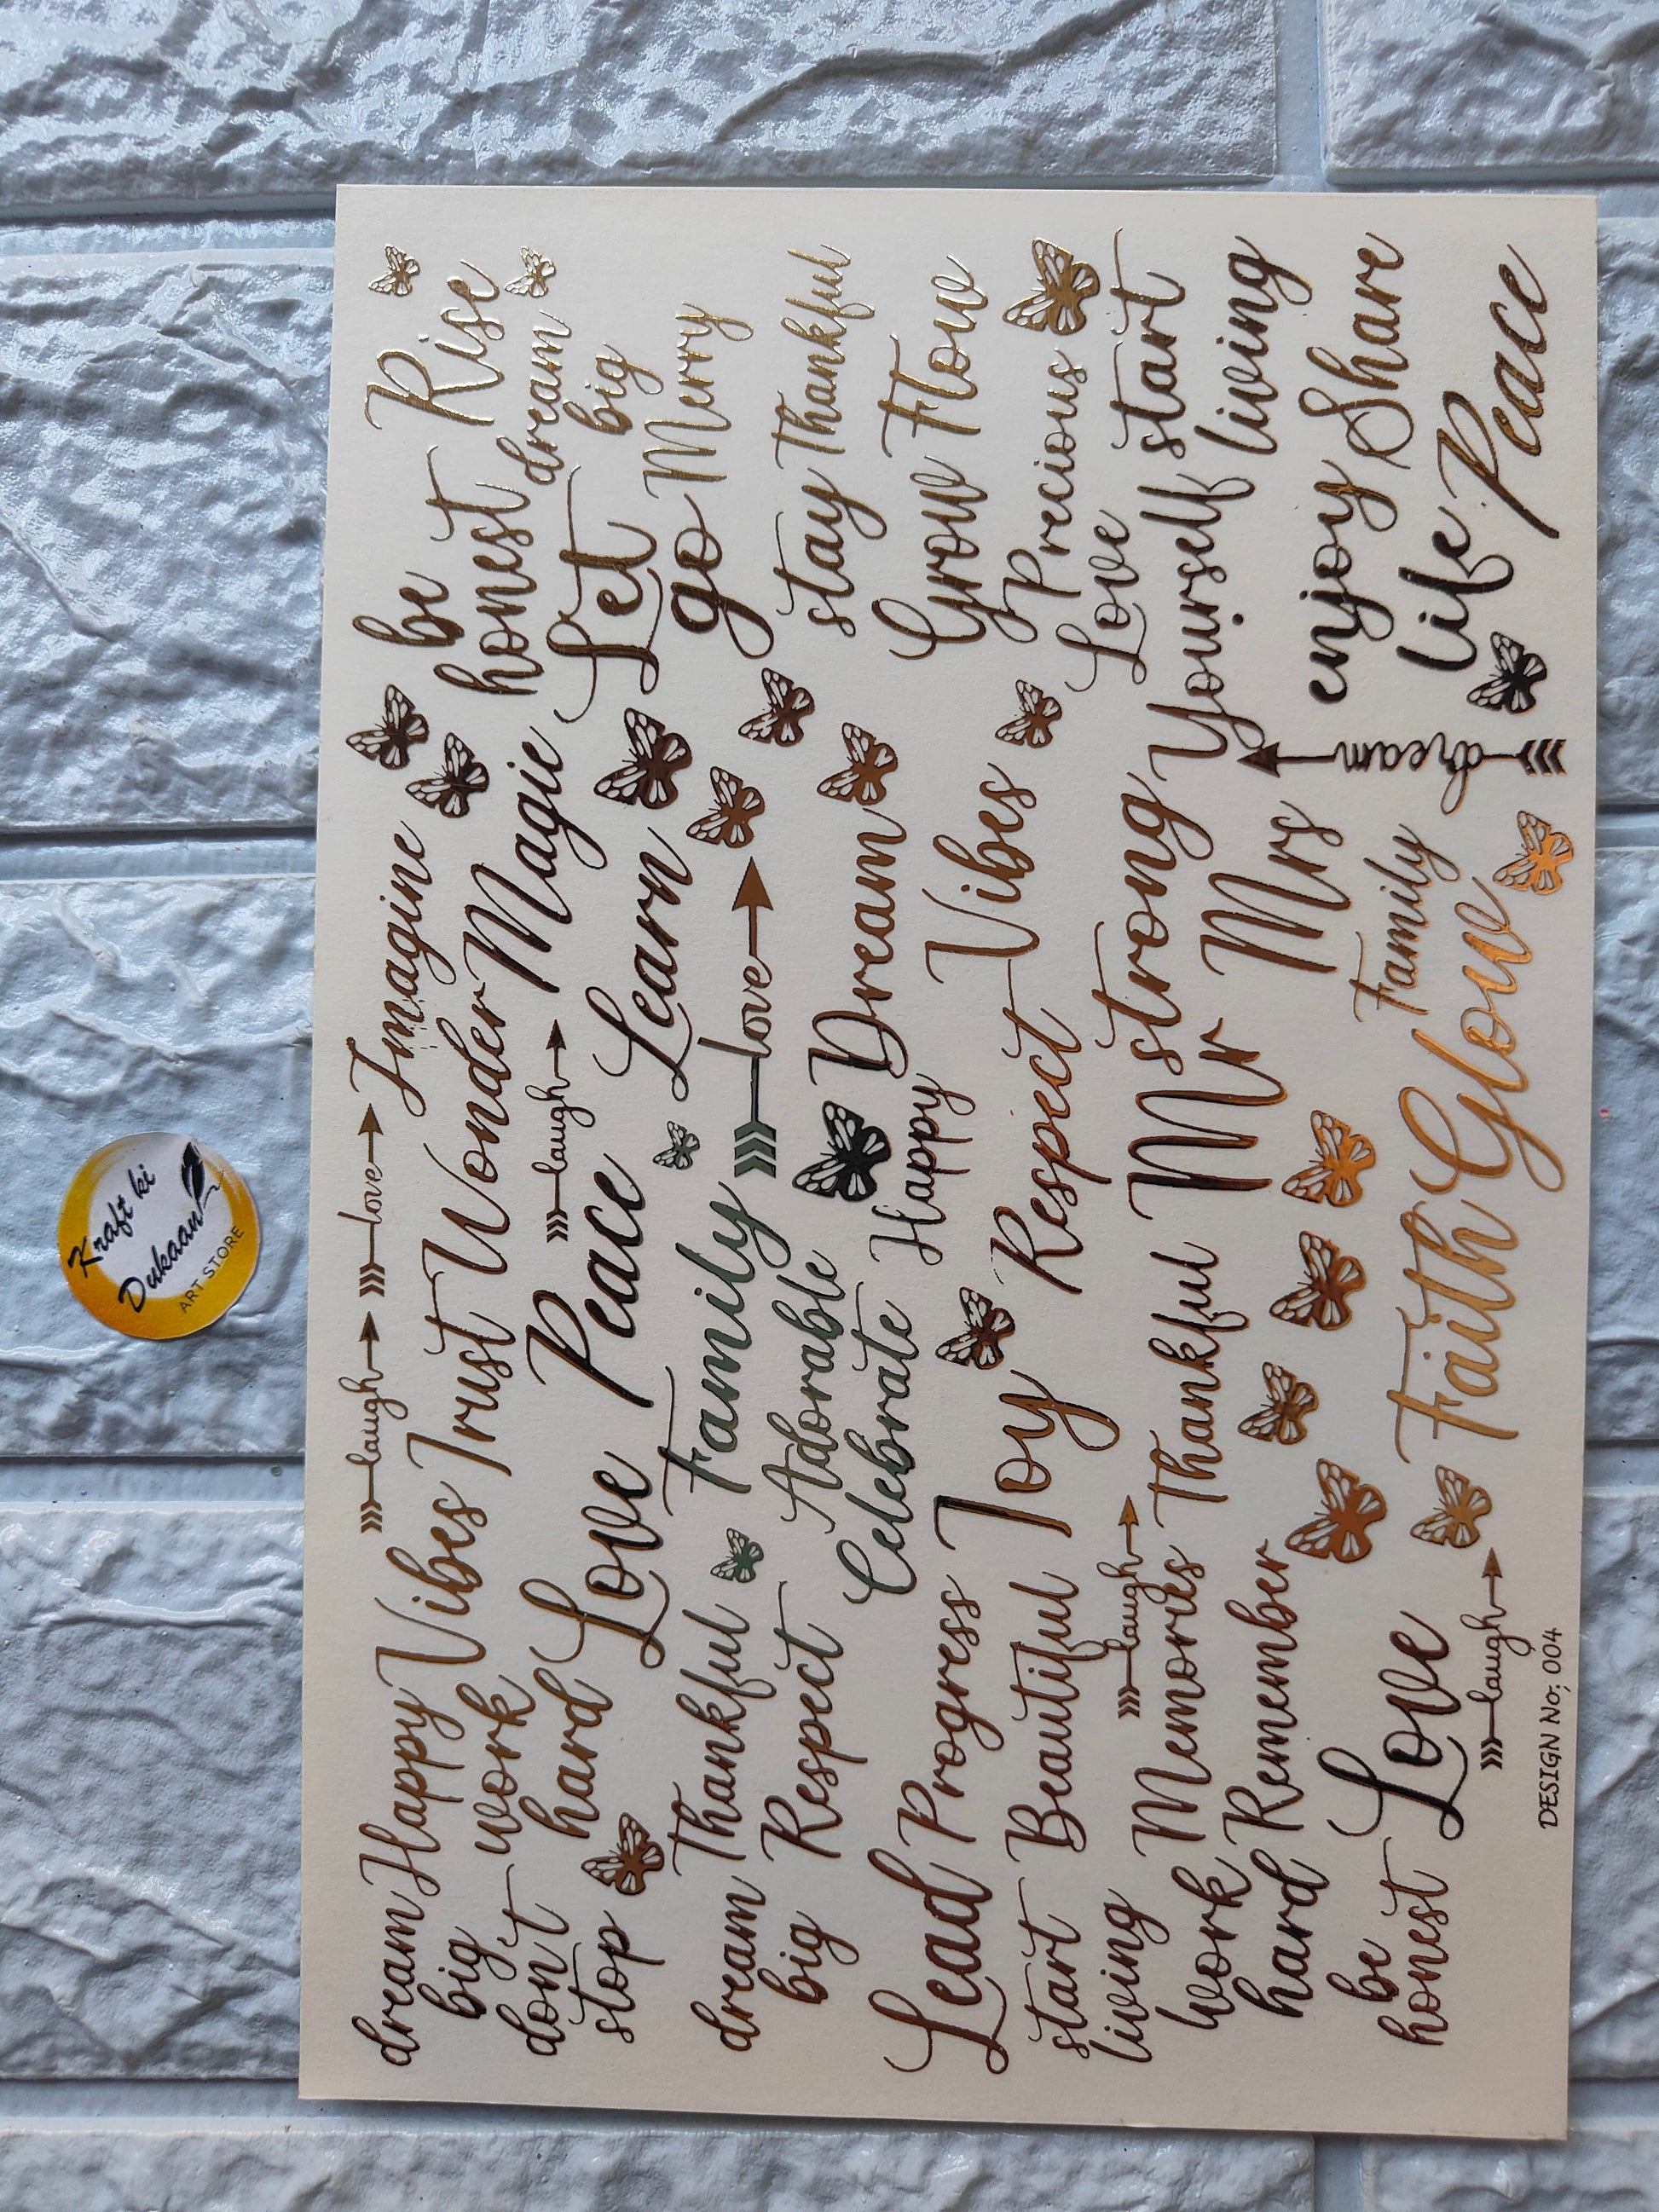 Kraft ki
Dukaan
ART STORE
laugh love Imagine be Rise
dream Happy Vibes Trust Wonder Magic honest
big dream
work laugh Let big
don't hard Love Peace Learn go Merry
stop
Thankful Family love stay Thankful
dream Respect Adorable Dream Grow Flow
big Celebrate Happy
Lead Progress Joy Respect Vibes Precious
start Beautiful Love start
living laugh strong Yourself living
Memories Thankful Mr Mrs
work Remember dream enjoy Share
hard Family life Peace
be Love Faith Glow
honest laugh
DESIGN No; 004